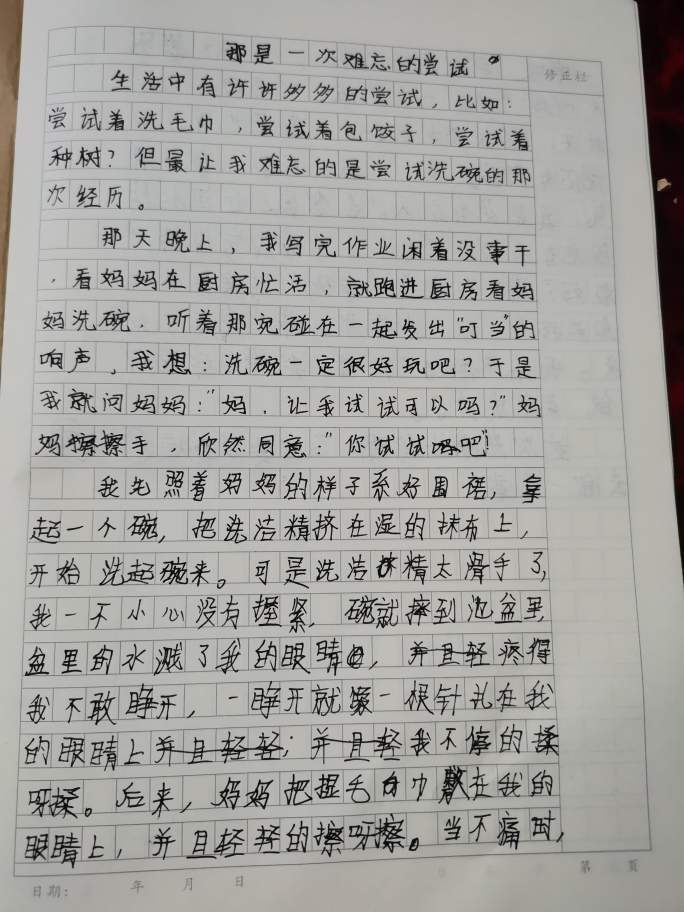 那是一次难忘的尝试
修正栏
生活中有许许多多的尝试，比如：
尝试着洗毛巾，尝试着包饺子，尝试着
种树？但最让我难忘的是尝试洗碗的那
次经历。
那天晚上，我写完作业闲着没事干
，看妈妈在厨房忙活，就跑进厨房看妈
妈洗碗．听着那宛碰在一起发出"叮当"的
响声，我想：洗碗一定很好玩吧？于是
我就问妈妈："妈．让我试试可以吗？"妈
妈擦擦手，欣然同意："你试试吧！"
我先照着妈妈的样子系好围裙，拿
起一个碗，把洗洁精挤在湿的抹布上，
开始洗起碗来。可是洗洁精太滑手了，
我一不小心没有握紧．碗就摔到池盆里，
盆里的水溅了我的眼睛，疼得
我不敢睁开，一睁开就像一根针扎在我
的眼睛上；我不停的揉
呀揉。后来，妈妈把湿毛巾敷在我的
眼睛上，并且轻轻的擦呀擦。当不痛时，
日期： 年 月 日
第 页